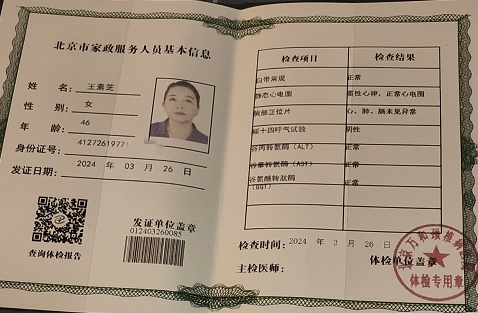 北京市家政服务人员基本信息
姓 名： 王素芝
性 别： 女
年 龄： 46
身份证号： 41272619771
发证日期： 2024 年 03 月 26 日
查询体检报告
发证单位盖章
012403260085
检查项目 检查结果
白带常规 正常
静态心电图 窦性心律，正常心电图
胸部正位片 心、肺、膈未见异常
碳十四呼气试验 阴性
谷丙转氨酶（ALT） 正常
谷草转氨酶（AST） 正常
谷氨酰转肽酶（GGT） 正常
检查时间： 2024 年 3 月 26 日
主检医师： 体检单位盖章
体检专用章